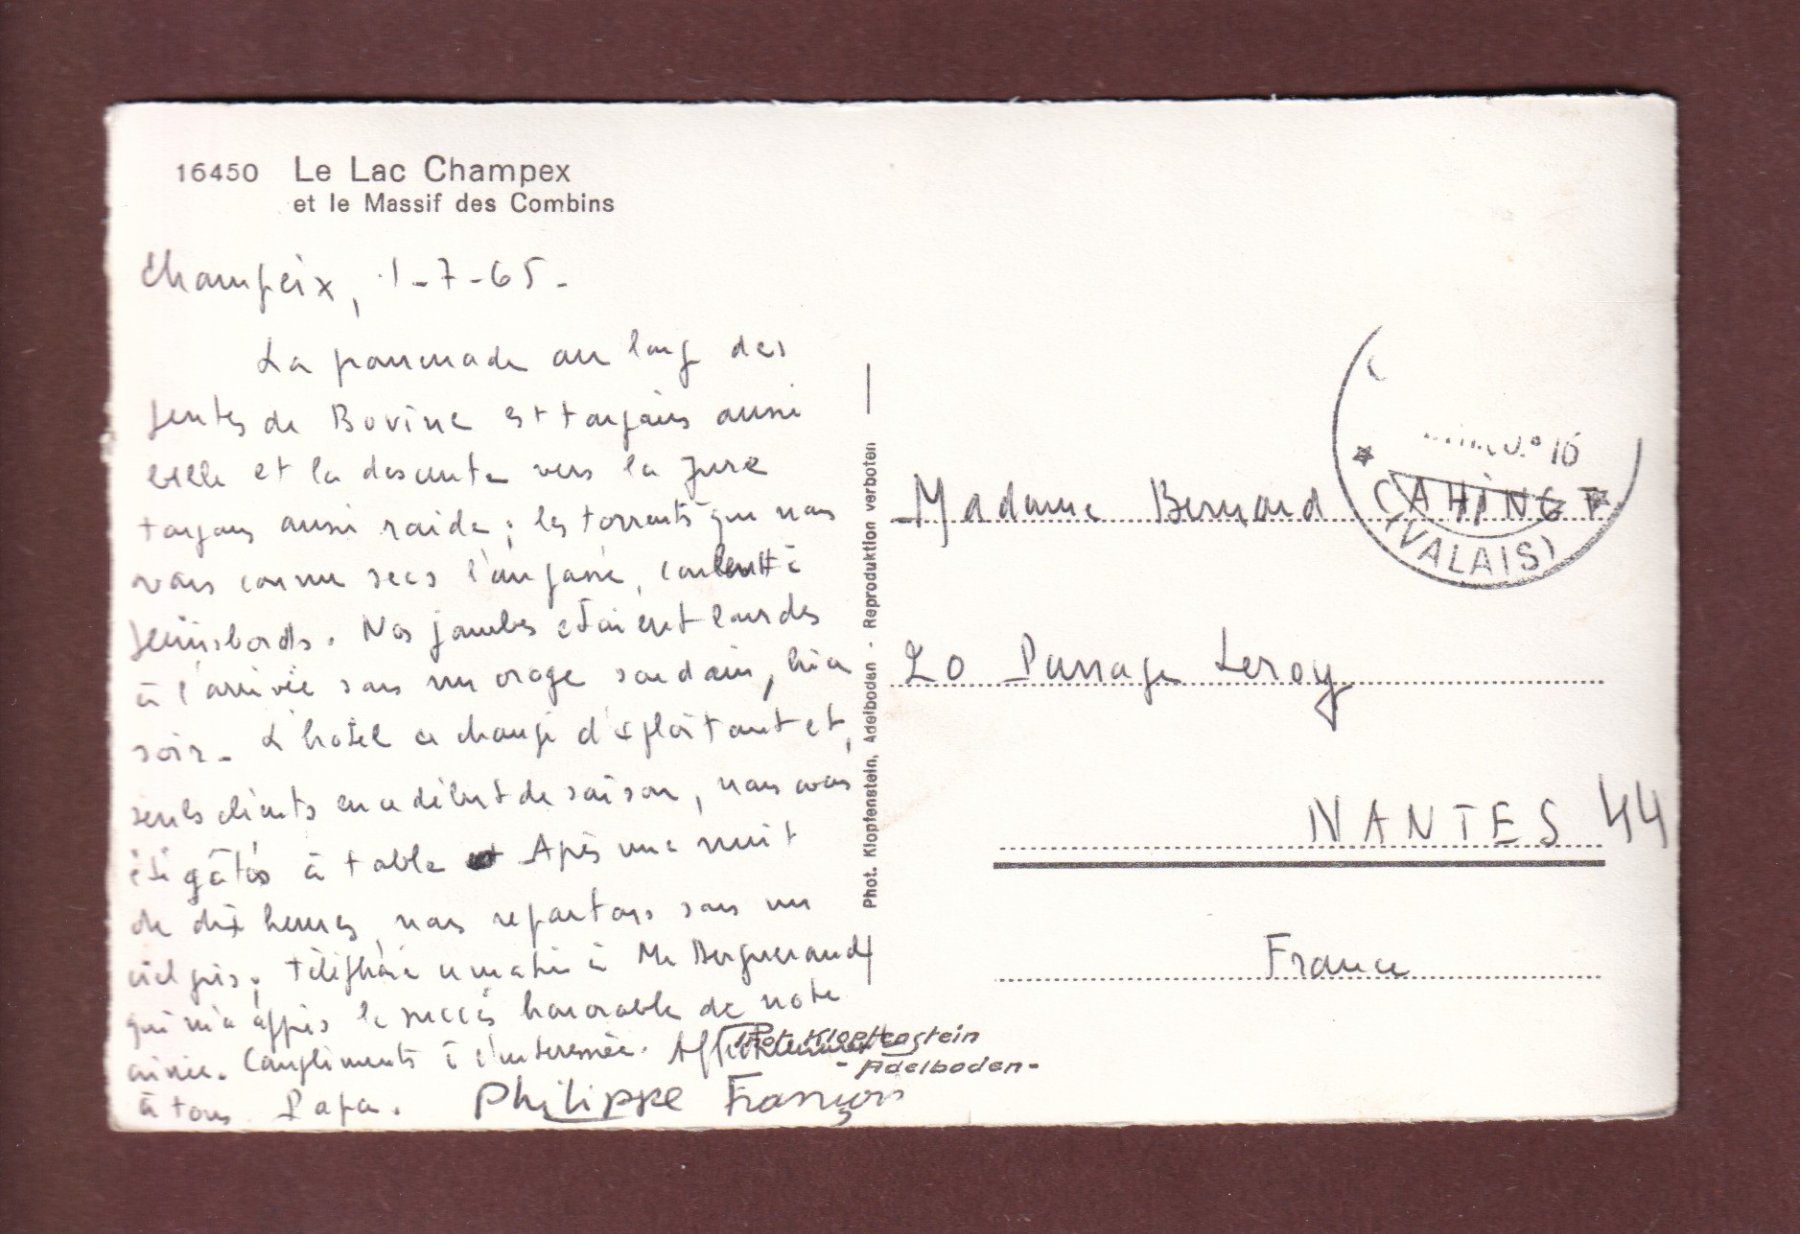 16450 Le Lac Champex
et le Massif des Combins
Champeix, 1-7-65-
La promenade au long des
pentes de Bovine est toujours aussi
belle et la descente vers la Jure
toujours aussi raide ; les torrents que nous
avons connu secs l'an passé, coulent à
pleins bords. Nos jambes étaient lourdes
à l'arrivée sous un orage soudain, hier
soir - L'hôtel a changé d'exploitant et,
seuls clients en ce début de saison, nous avons
été gâtés à table Après une nuit
de dix heures, nous repartons sous un
ciel gris. Téléphoné ce matin à Mr Berguerand
qui m'a appris le succès honorable de notre
ainée. Compliments à l'intéressée. Affectueusement
à tous Papa. Philippe François
Phot. Klopfenstein
- Adelboden -
Phot. Klopfenstein, Adelboden - Reproduktion verboten
16
(VALAIS)
Madame Bernard CAHINGT
20 Passage Leroy
NANTES 44
France